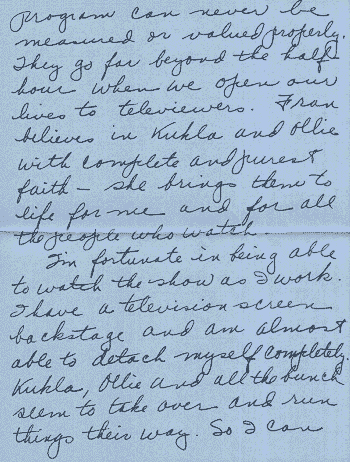 program can never be
measured or valued properly.
They go far beyond the half
hour when we open our
lives to televiewers. Fran
believes in Kukla and Ollie
with complete and purest
faith – she brings them to
life for me and for all
the people who watch.
I'm fortunate in being able
to watch the show as I work.
I have a television screen
backstage and am almost
able to detach myself completely.
Kukla, Ollie and all the bunch
seem to take over and run
things their way. So I can